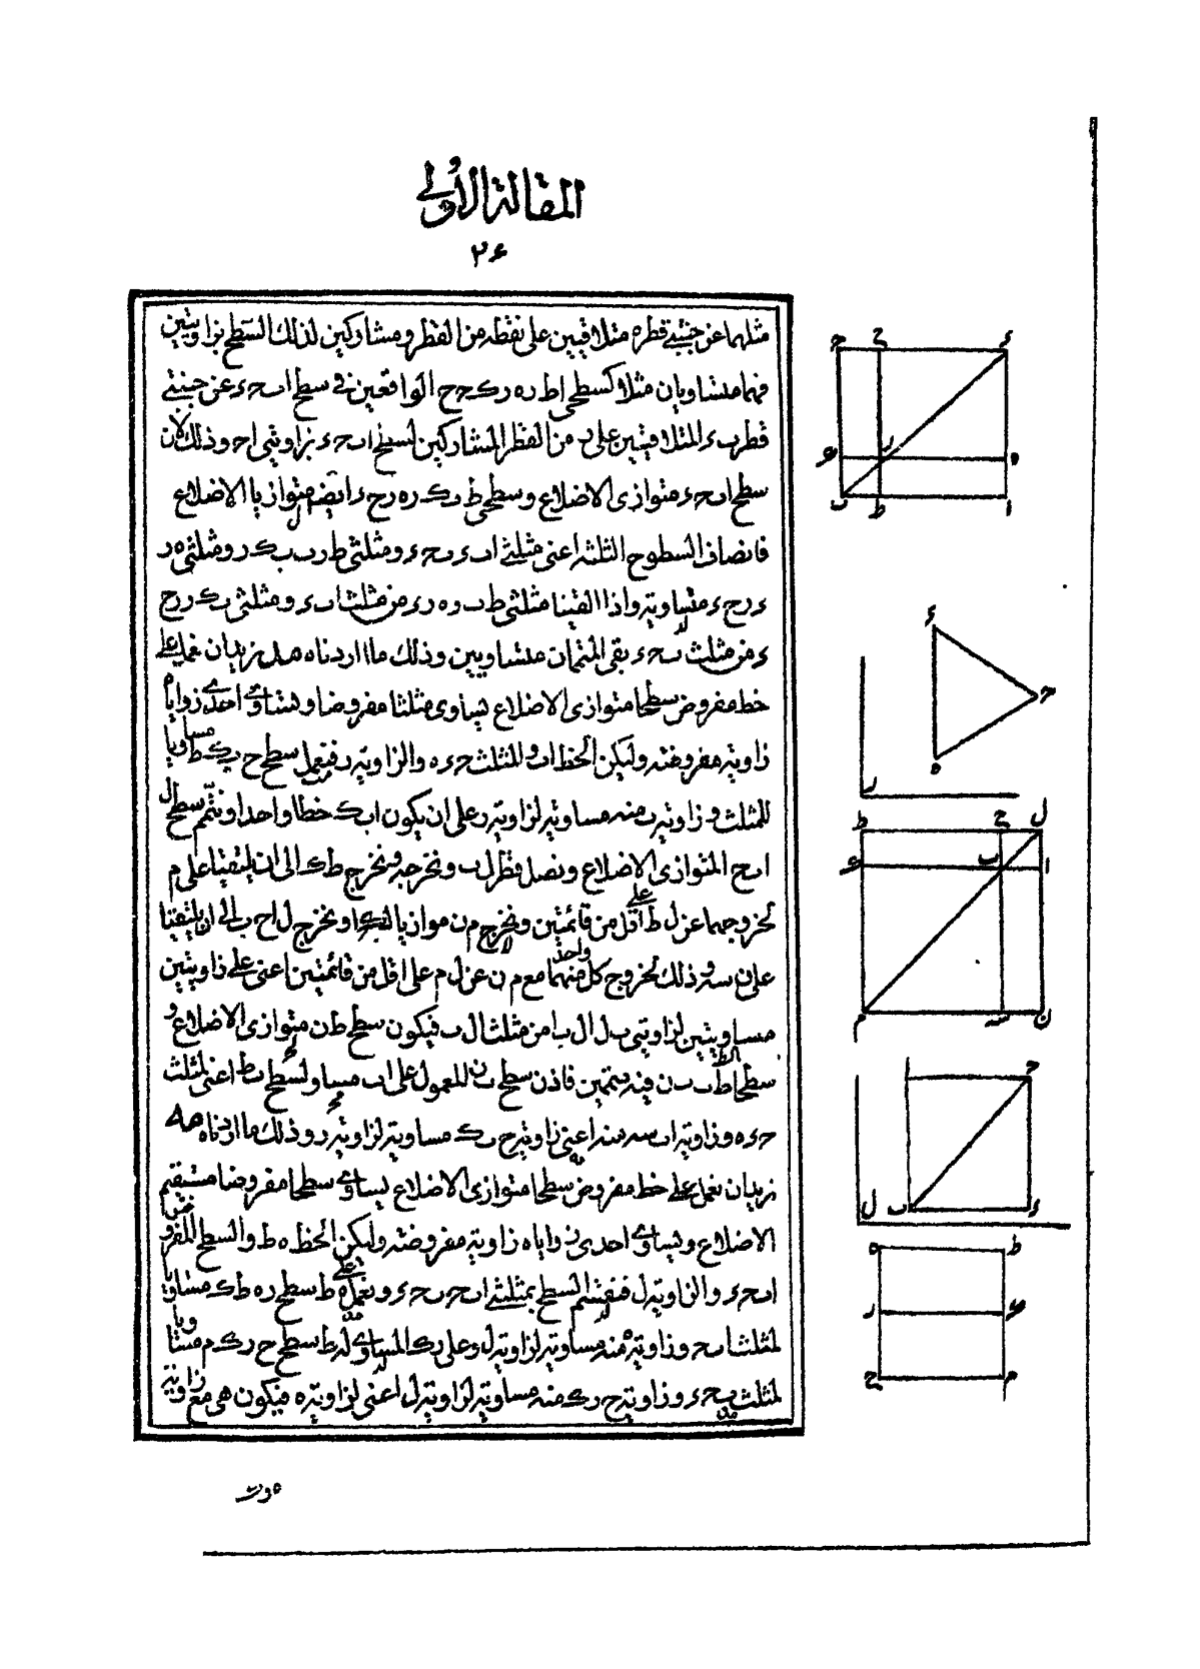 المقالة الأولى
٢٤
مثلهما عن جنبتي قطره متلاقيين على نقطة من القطر ومشاركين لذلك السطح بزاويتين
فهما متساويان مثلا كسطحي اط ره رك حح الواقعين في سطح ابحء عن جنبتي
قطر بء المتلاقيين على ر من القطر المشاركين لسطح ابحء بزاويتي اح وذلك لان
سطح ابحء متوازى الاضلاع وسطحي طبكر هرحء ايضا متوازيا الاضلاع
فانصاف السطوح الثلثة اعنى مثلثي ابء بحء ومثلثي طرب بكر ومثلثي هر
ء رحء متساوية واذا القينا مثلثي طبر هرء من مثلث ابء ومثلثي بكر رح
ء من مثلث بحء بقى المتممان متساويين وذلك ما اردناه مد نريد ان نعمل على
خط مفروض سطحا متوازى الاضلاع يساوى مثلثا مفروضا ويساوى احدى زواياه
زاوية مفروضة وليكن الخط اب والمثلث حءه والزاوية ر فنعمل سطح حبكط مساويا
للمثلث وزاوية ب منه مساوية لزاوية ر على ان يكون ابك خطا واحدا ونتمم سطح ل
ابح المتوازى الاضلاع ونصل قطر لب ونخرجه ونخرج طك الى ان يلتقيا على م
لخروجهما عن لط على اقل من قائمتين ونخرج من موازيا لبكا ونخرج لا حب الى ان يلتقيا
على ن سه وذلك لخروج كل واحد منهما مع من عن لم على اقل من قائمتين اعنى على زاويتين
مساويتين لزاويتي بل ال با من مثلث الب فيكون سطح طن متوازى الاضلاع و
سطحا طب بن فيه متممين فاذن سطح بن المعمول على اب مساو لسطح بط اعنى لمثلث
حءه وزاوية اب سه منه اعنى زاوية حبك مساوية لزاوية ر وذلك ما اردناه مه
نريد ان نعمل على خط مفروض سطحا متوازى الاضلاع يساوى سطحا مفروضا مستقيم
الاضلاع ويساوى احدى زواياه زاوية مفروضة وليكن الخط ه ط والسطح المفروض
ابحء والزاوية ل فنقسم السطح بمثلثي ابح بحء ونعمل على ه ط سطح ره طك مساويا
لمثلث ابح وزاوية ه منه مساوية لزاوية ل وعلى رك المساوى له ط سطح ح رك م مساويا
لمثلث بحء وزاوية ح رك منه مساوية لزاوية ل اعنى لزاوية ه فيكون هى مع زاوية
ه رك
ح ح ء
ع ر ه
ب ط ا
ء
ح
ه
ر
ط ح ل
ع ب ا
م سه ن
ح
ل ب ء
ه ط
ر ك
ح م